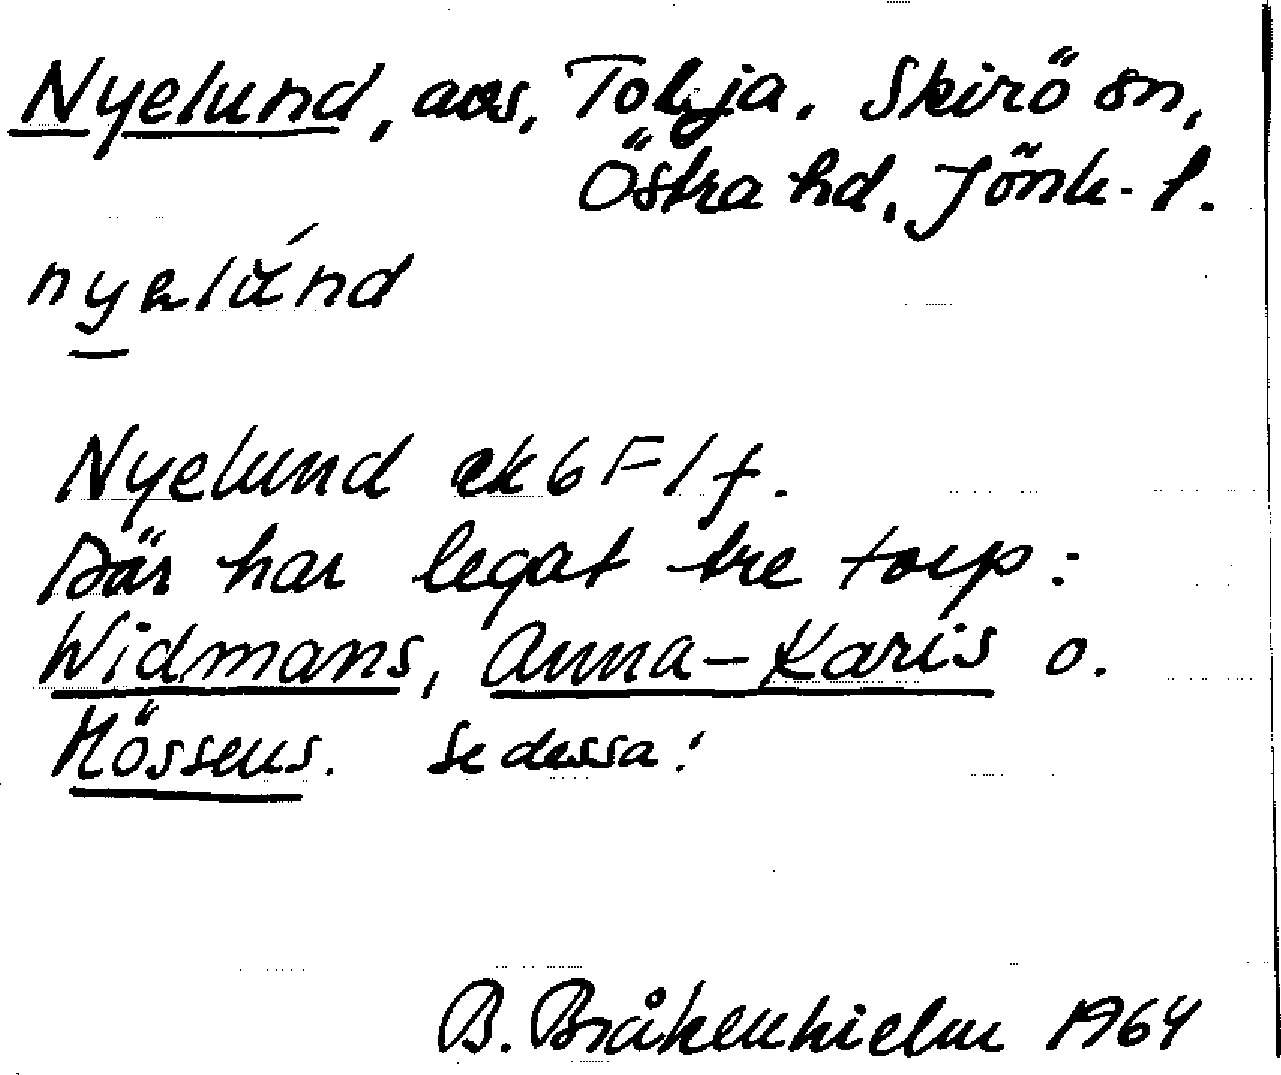 Nyelund, avs, Tobja. Skirö sn,
Östra hd. Jönk. l.
nyelünd
Nyelund ek 6 F 1 f.
Där har legat tre torp:
Widmans, Anna-Karis o.
Hössens. Se dessa!
B. Bråkenhielm 1964